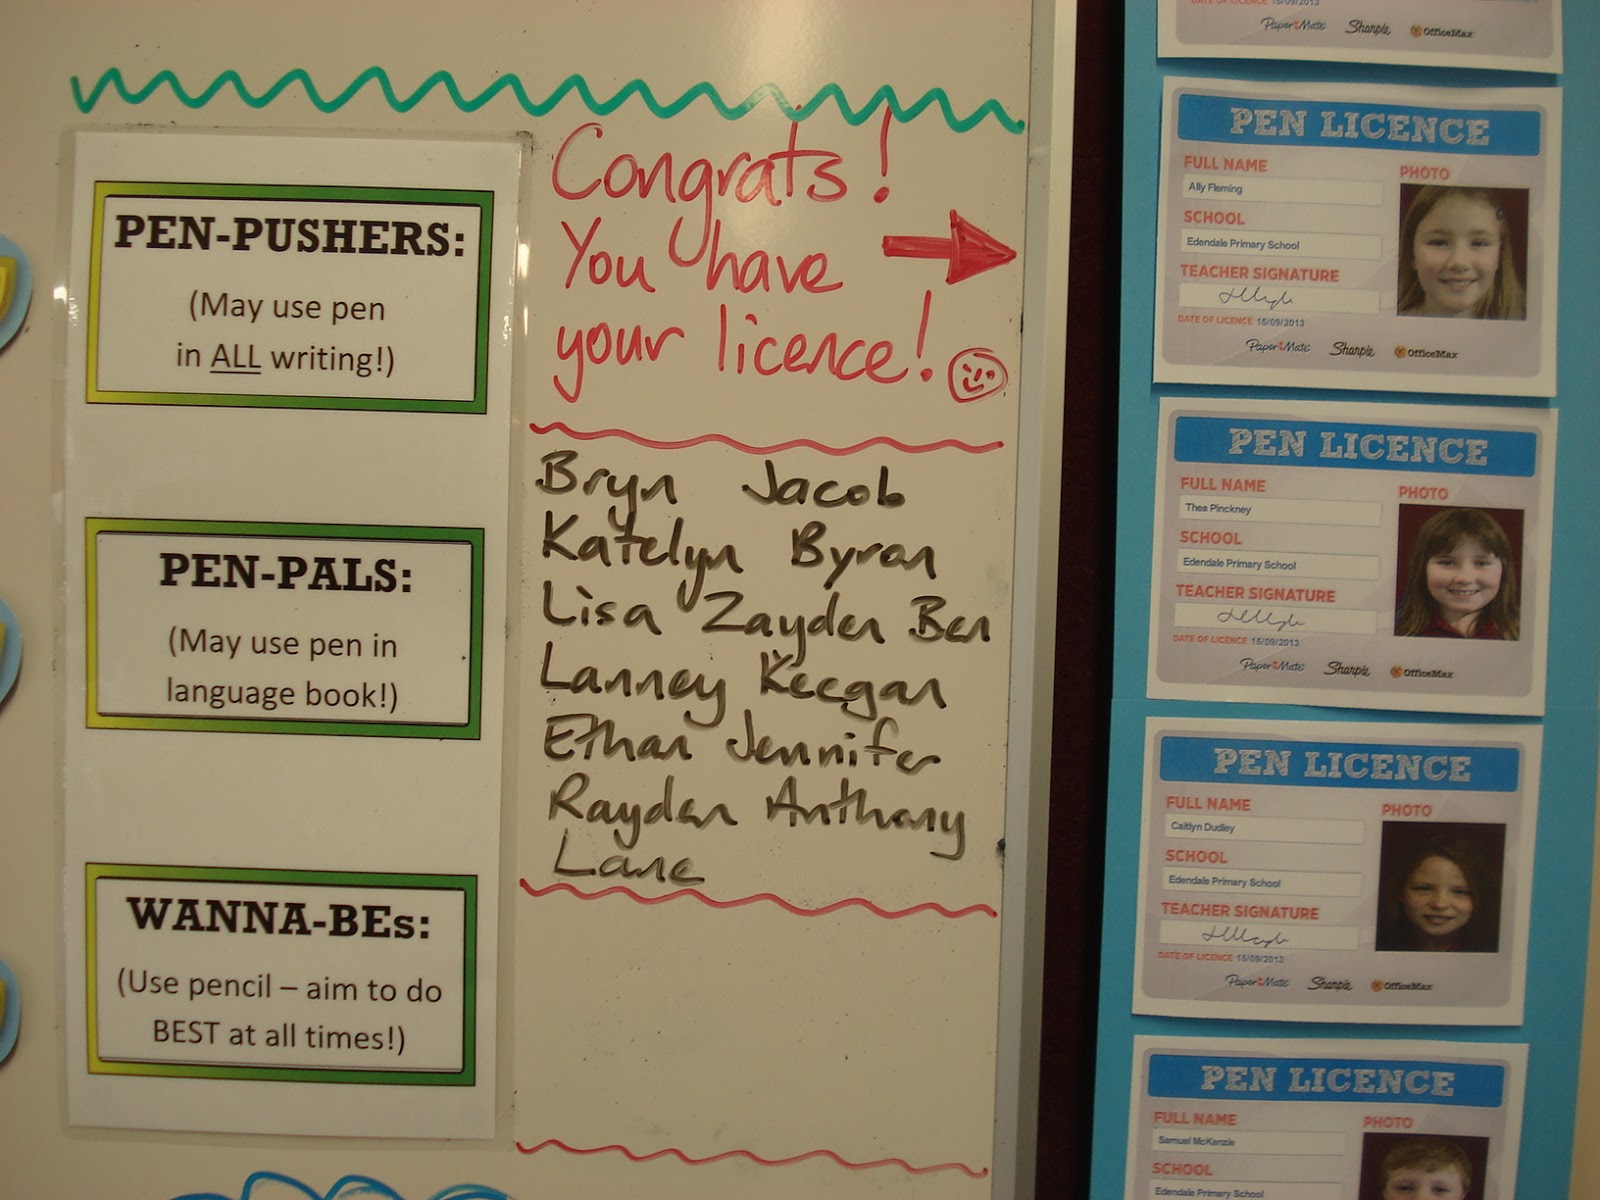 PEN-PUSHERS:
(May use pen
in ALL writing!)
PEN-PALS:
(May use pen in
language book!)
WANNA-BEs:
(Use pencil – aim to do
BEST at all times!)
Congrats!
You have
your licence!
Bryn Jacob
Katelyn Byron
Lisa Zayden Ben
Lanney Keegan
Ethan Jennifer
Rayden Anthony
Lane
DATE OF LICENCE 15/09/2013
Paper Mate Sharpie OfficeMax
PEN LICENCE
FULL NAME
PHOTO
Ally Fleming
SCHOOL
Edendale Primary School
TEACHER SIGNATURE
DATE OF LICENCE 15/09/2013
Paper Mate Sharpie OfficeMax
PEN LICENCE
FULL NAME
PHOTO
Thea Pinckney
SCHOOL
Edendale Primary School
TEACHER SIGNATURE
DATE OF LICENCE 15/09/2013
Paper Mate Sharpie OfficeMax
PEN LICENCE
FULL NAME
PHOTO
Caitlyn Dudley
SCHOOL
Edendale Primary School
TEACHER SIGNATURE
DATE OF LICENCE 15/09/2013
Paper Mate Sharpie OfficeMax
PEN LICENCE
FULL NAME
PHOTO
Samuel McKenzie
SCHOOL
Edendale Primary School